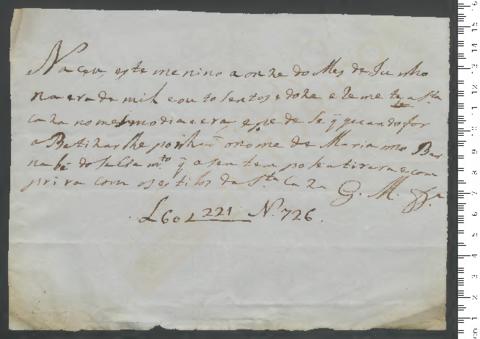 Naceu este menino a onze do Mes de Junho
na era de mil e outosentos e doze e Remete a Sta
Caza no mesmo dia e era, e pede se q quando for
a Batizar lhe ponhão o nome de Mariano Bar
nabé do q a seu tempo se tirara e com
prira com os estilos da Sta Caza G. M.
L 60 221 N. 726.